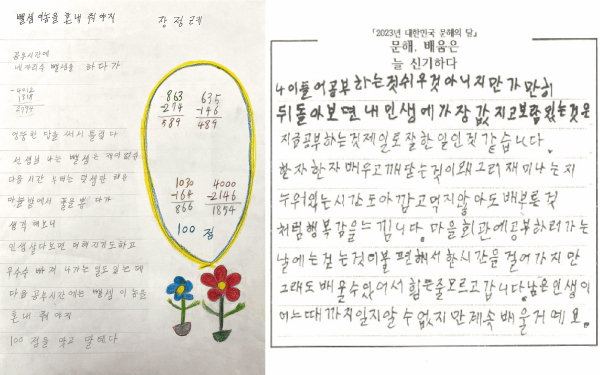 뺄셈 이놈을 혼내 줘야지
장정례
공부시간에
네자리수 뺄셈을 하다가
-4012
1318
2794
엉뚱한 답을 써서 틀렸다
선생님 나는 뺄셈은
다음 시간 부터는 덧셈만 해요
마늘밭에서 풀을 뽑다가
생각 해보니
인생살다보면 더해지기도하고
우수수 빠져 나가는 일도 있는데
다음 공부시간에는 뺄셈 이놈을
혼내 줘야지
100 점을 맞고 말테다
863 635
-274 -146
589 489
1030 4000
-164 -2146
866 1854
100 점
「2023년 대한민국 문해의 달」
문해, 배움은
늘 신기하다
나이들어공부하는것쉬우것아니지만가만히
뒤돌아보면내인생에가장값지고보람있는것은
지금공부하는것제일로잘한일인것 같습니다.
한자한자배우고깨닫는것이왜그리재미나는지
누워있는시간도아깝고먹지않아도배부른것
처럼행복감을느낍니다. 마을회관에공부하러가는
날에는걷는것이불편해서한시간을걸어가지만
그래도배울수있어서힘든줄모르고갑니다.남은인생이
어느때까지일지알수없지만계속배울거예요.